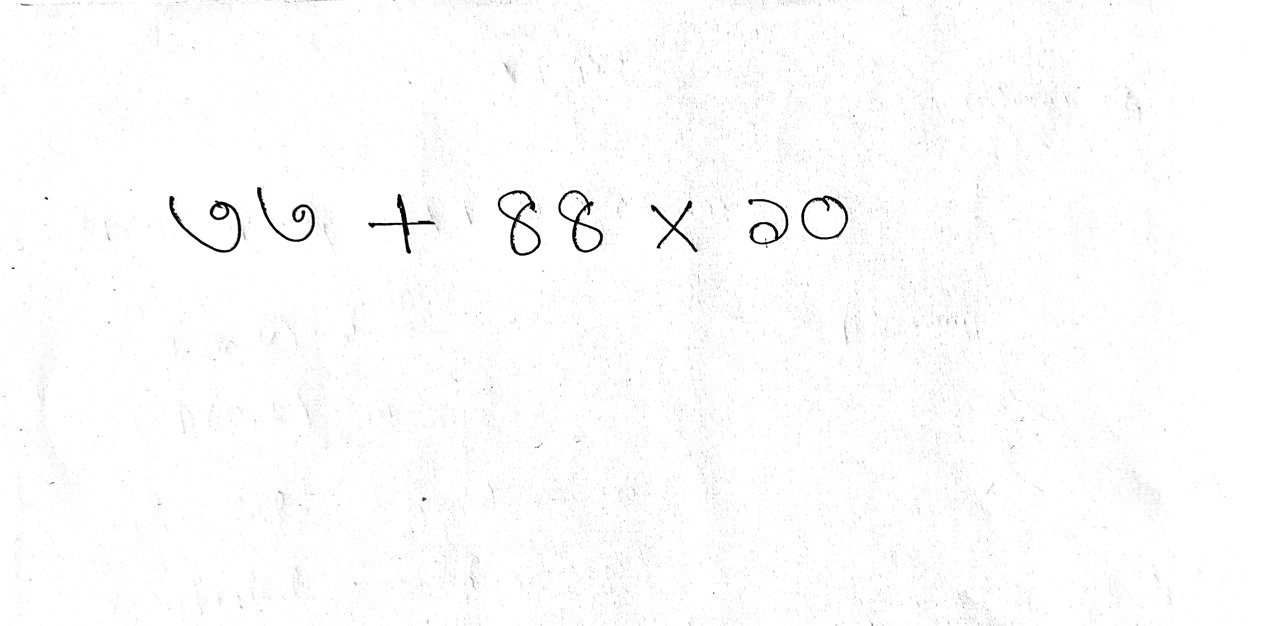 ৩৩ + ৪৪ × ১০